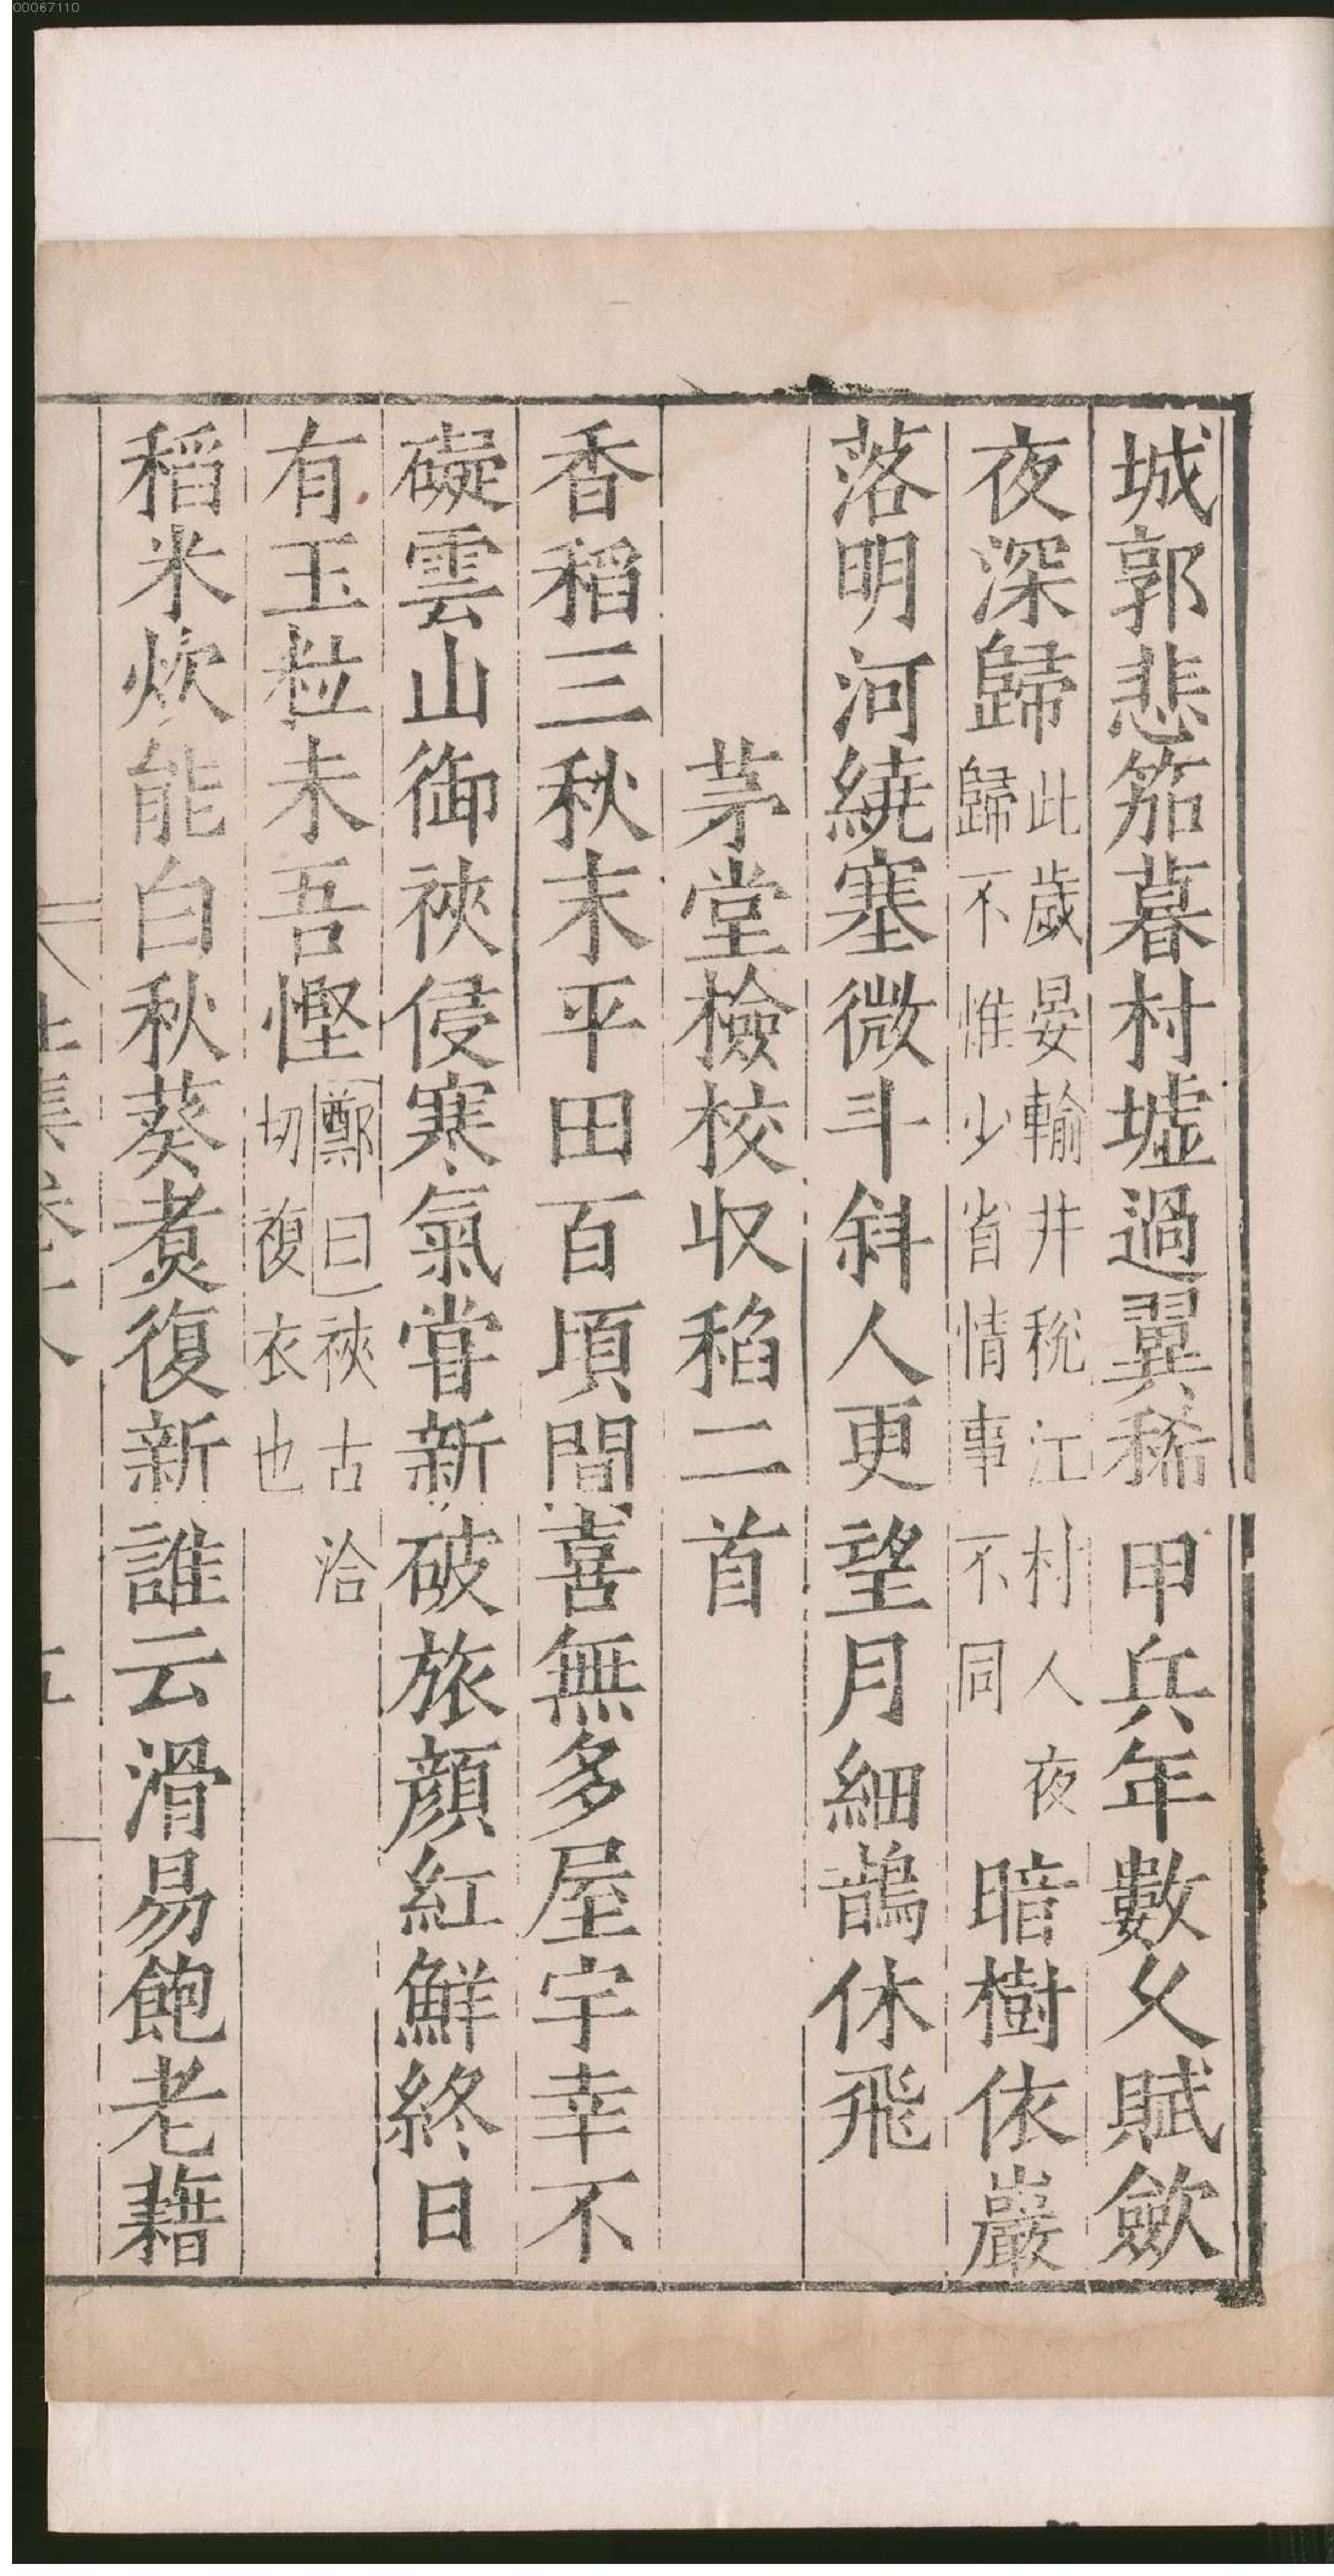 00067110
城郭悲笳暮村墟過翼稀甲兵年數乆賦歛
夜深歸此歲晏輸井稅江村人夜歸不惟少省情事不同暗樹依巖
落明河繞塞微斗斜人更望月細鵲休飛
茅堂檢校収稻二首
香稻三秋末平田百頃間喜無多屋宇幸不
礙雲山御裌侵寒氣嘗新破旅顏紅鮮終日
有玉粒未吾慳鄭曰裌古洽切複衣也
稻米炊能白秋葵煮復新誰云滑易飽老藉